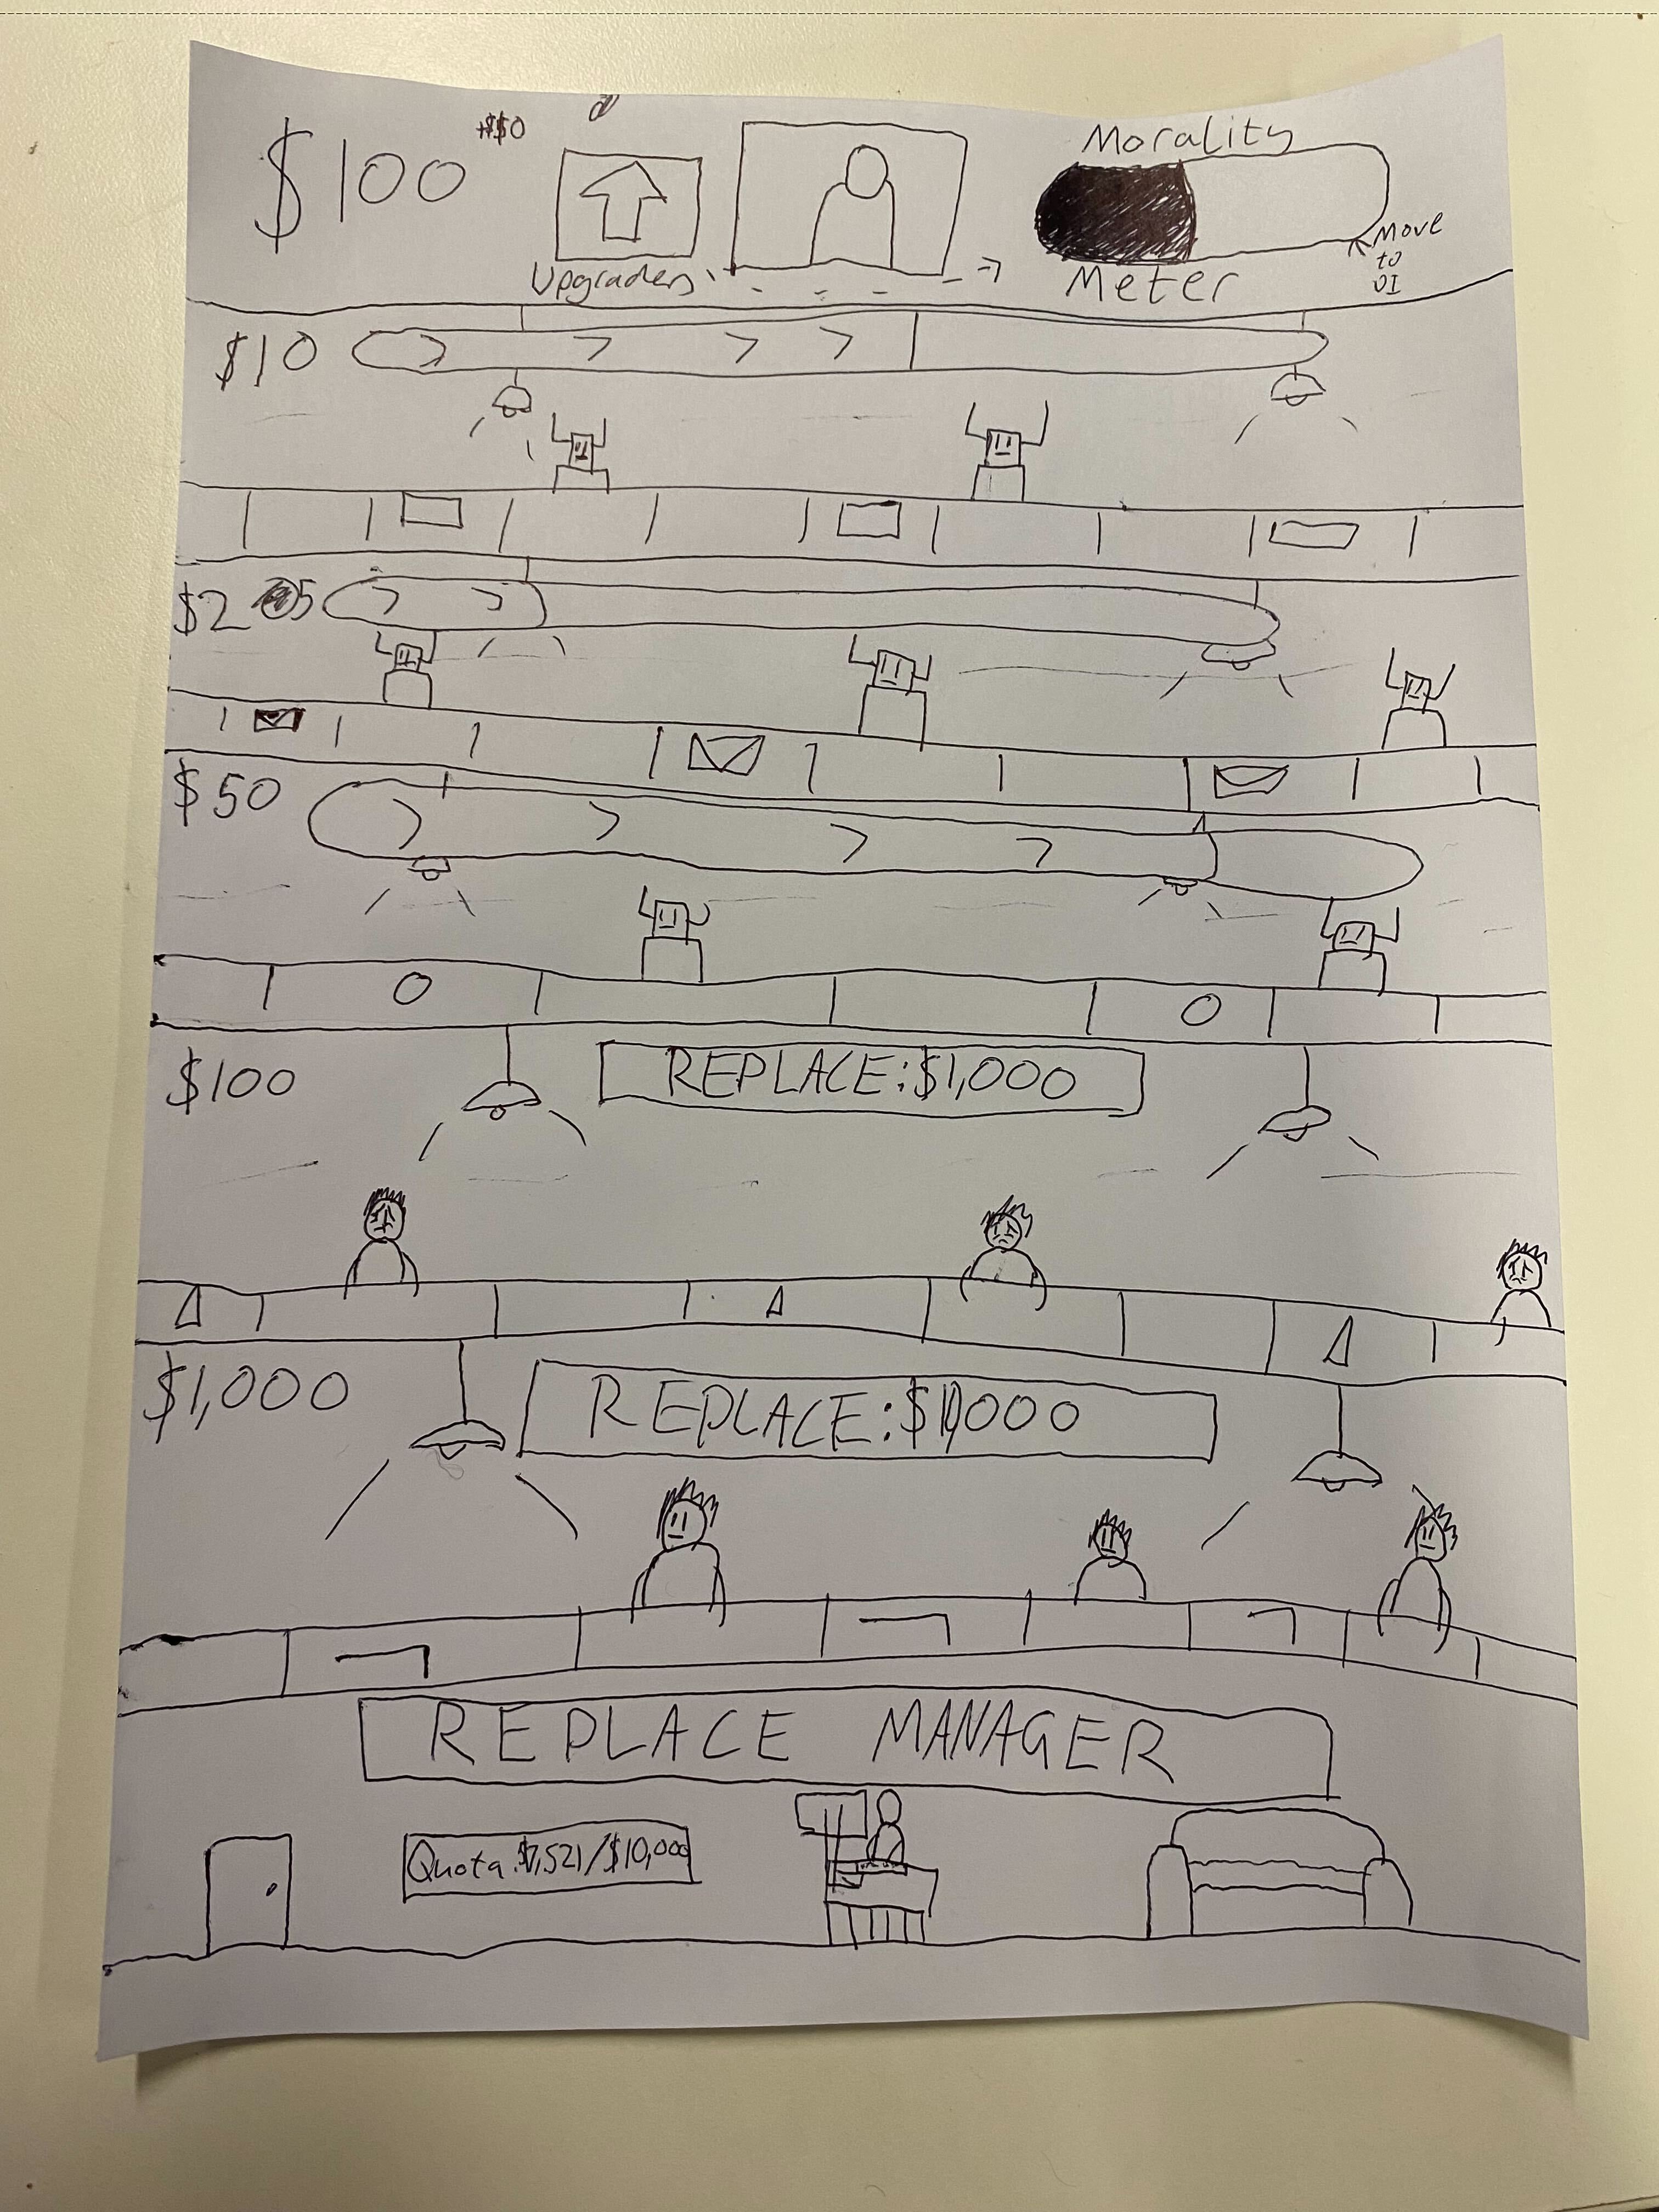 $100 +$50
Morality
Upgraders
Meter
Move
to
UI
$10
$25
$50
$100
REPLACE:$1,000
$1,000
REPLACE:$10,000
REPLACE MANAGER
Quota:$7,521/$10,000